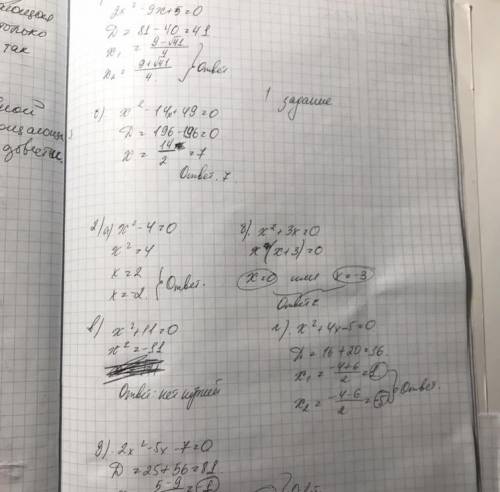 только
так
2x² - 9x + 5 = 0
D = 81 - 40 = 41
x₁ = (9 - √41)/4
x₂ = (9 + √41)/4 } Ответ
1 задание
c) x² - 14x + 49 = 0
D = 196 - 196 = 0
x = 14/2 = 7
Ответ. 7
2) а) x² - 4 = 0
x² = 4
x = 2
x = -2 } Ответ.
б) x² + 3x = 0
x(x+3) = 0
x = 0 или x = -3
Ответ
в) x² + 11 = 0
x² = -11
Ответ: нет корней
г) x² + 4x - 5 = 0
D = 16 + 20 = 36
x₁ = (-4+6)/2 = 1
x₂ = (-4-6)/2 = -5 } Ответ.
д) 2x² - 5x - 7 = 0
D = 25 + 56 = 81